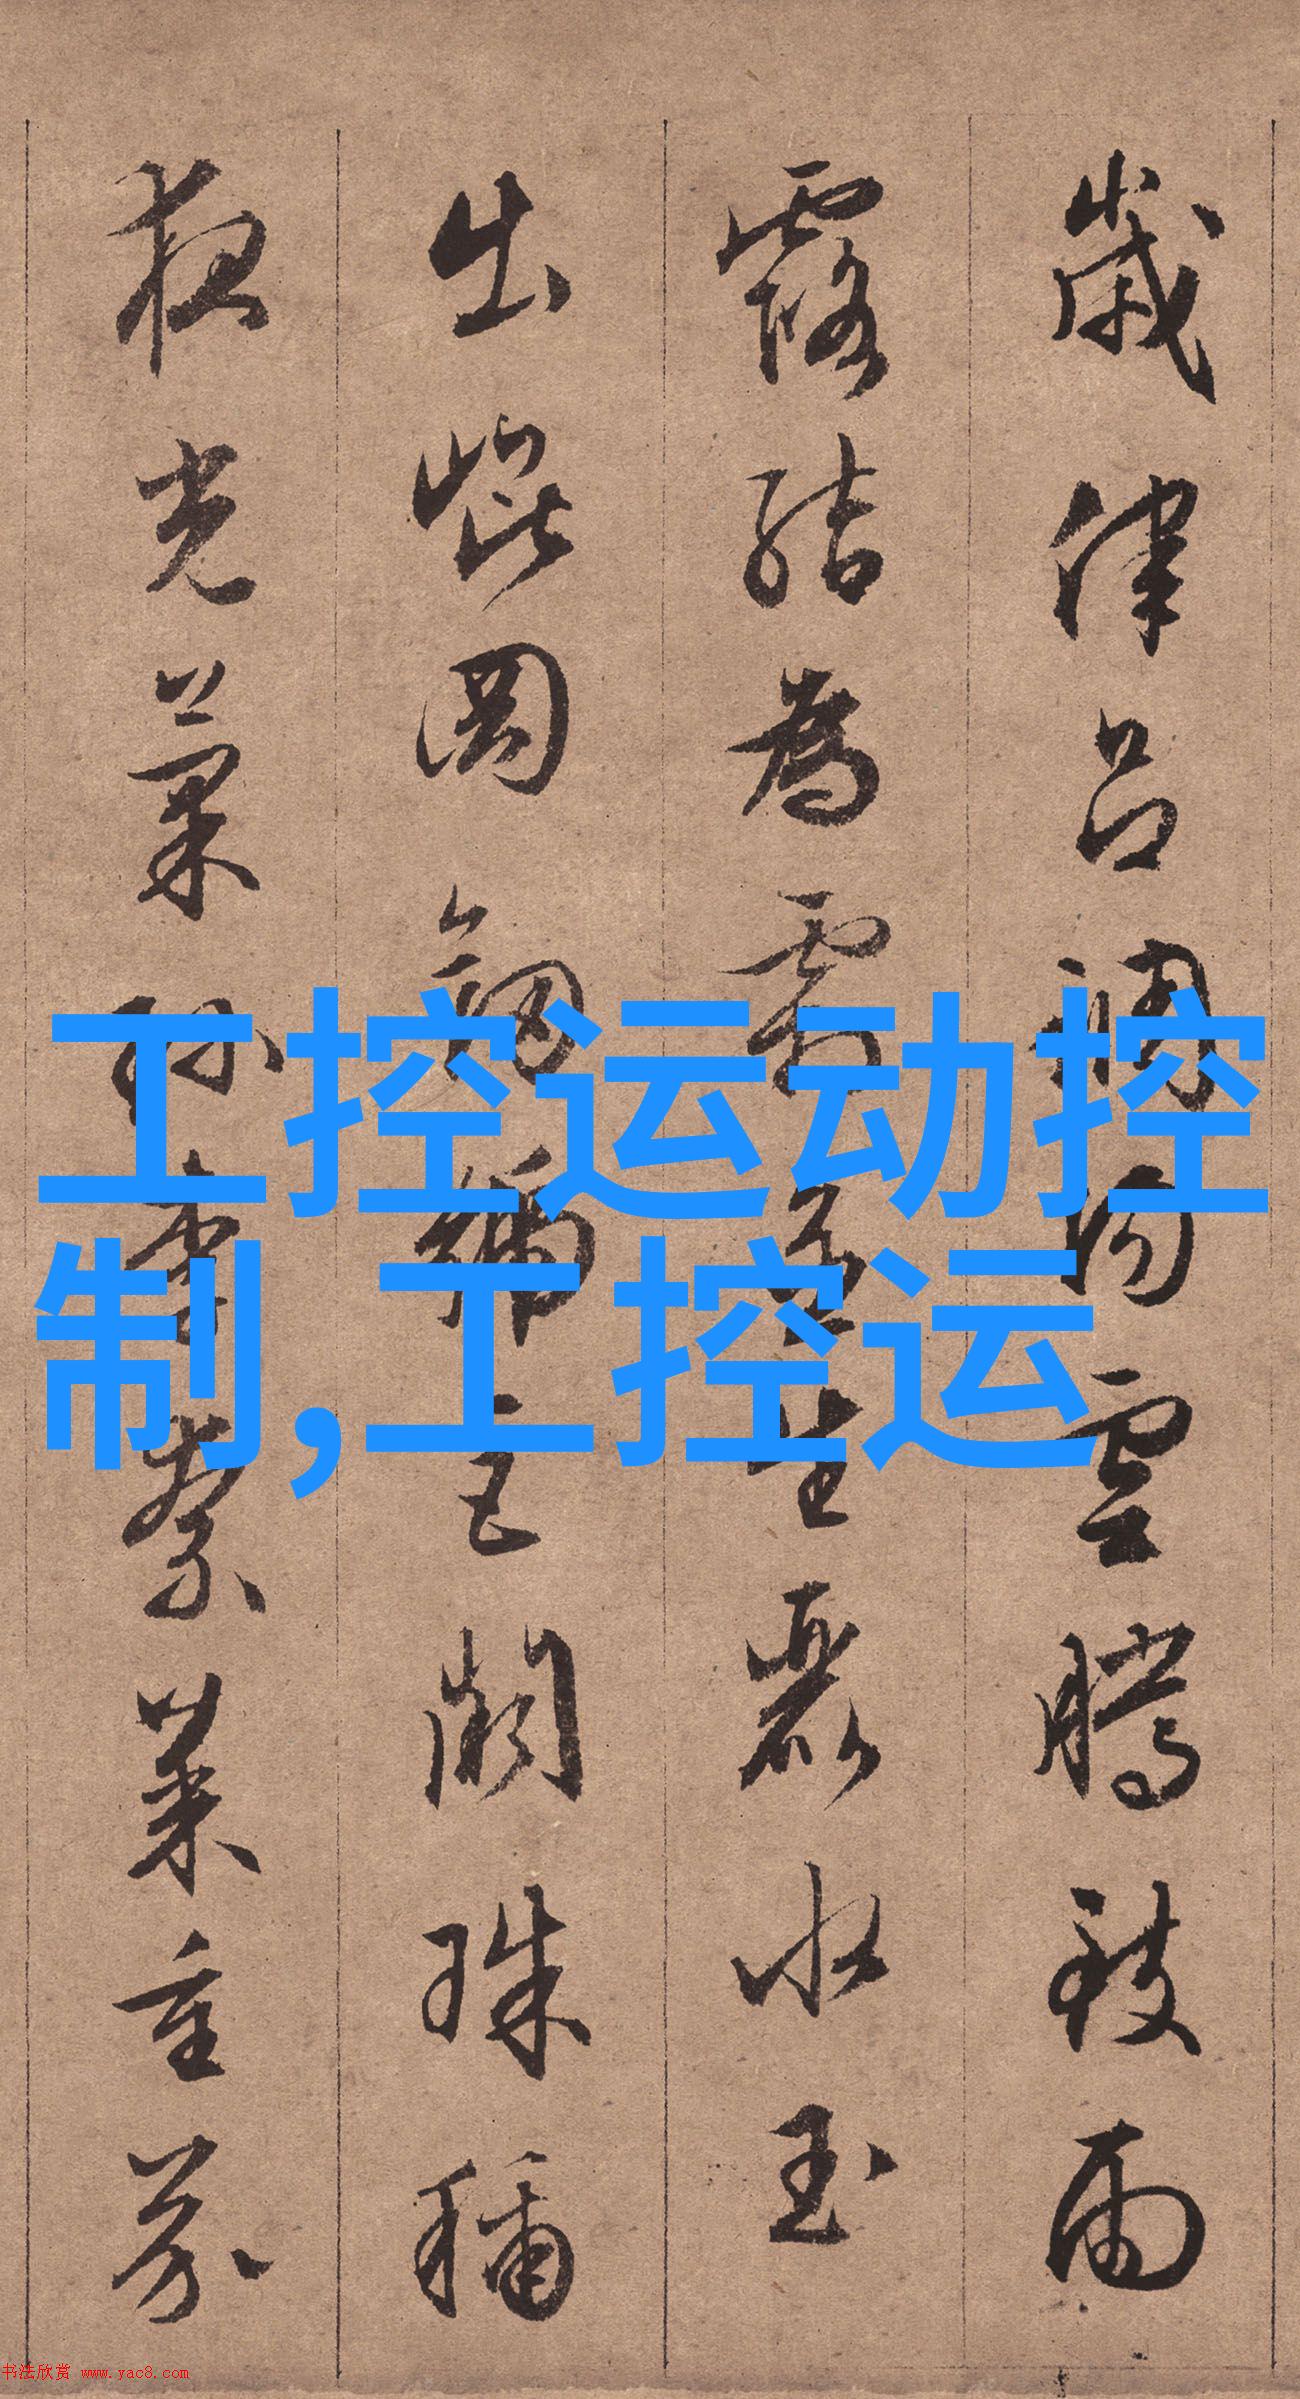 歲律呂調陽雲騰致雨
露結為霜金生麗水玉
出崐岡劍號巨闕珠稱
夜光菓珍李柰菜重芥
工控运动控
制,工控运
书法欣赏 www.yac8.com